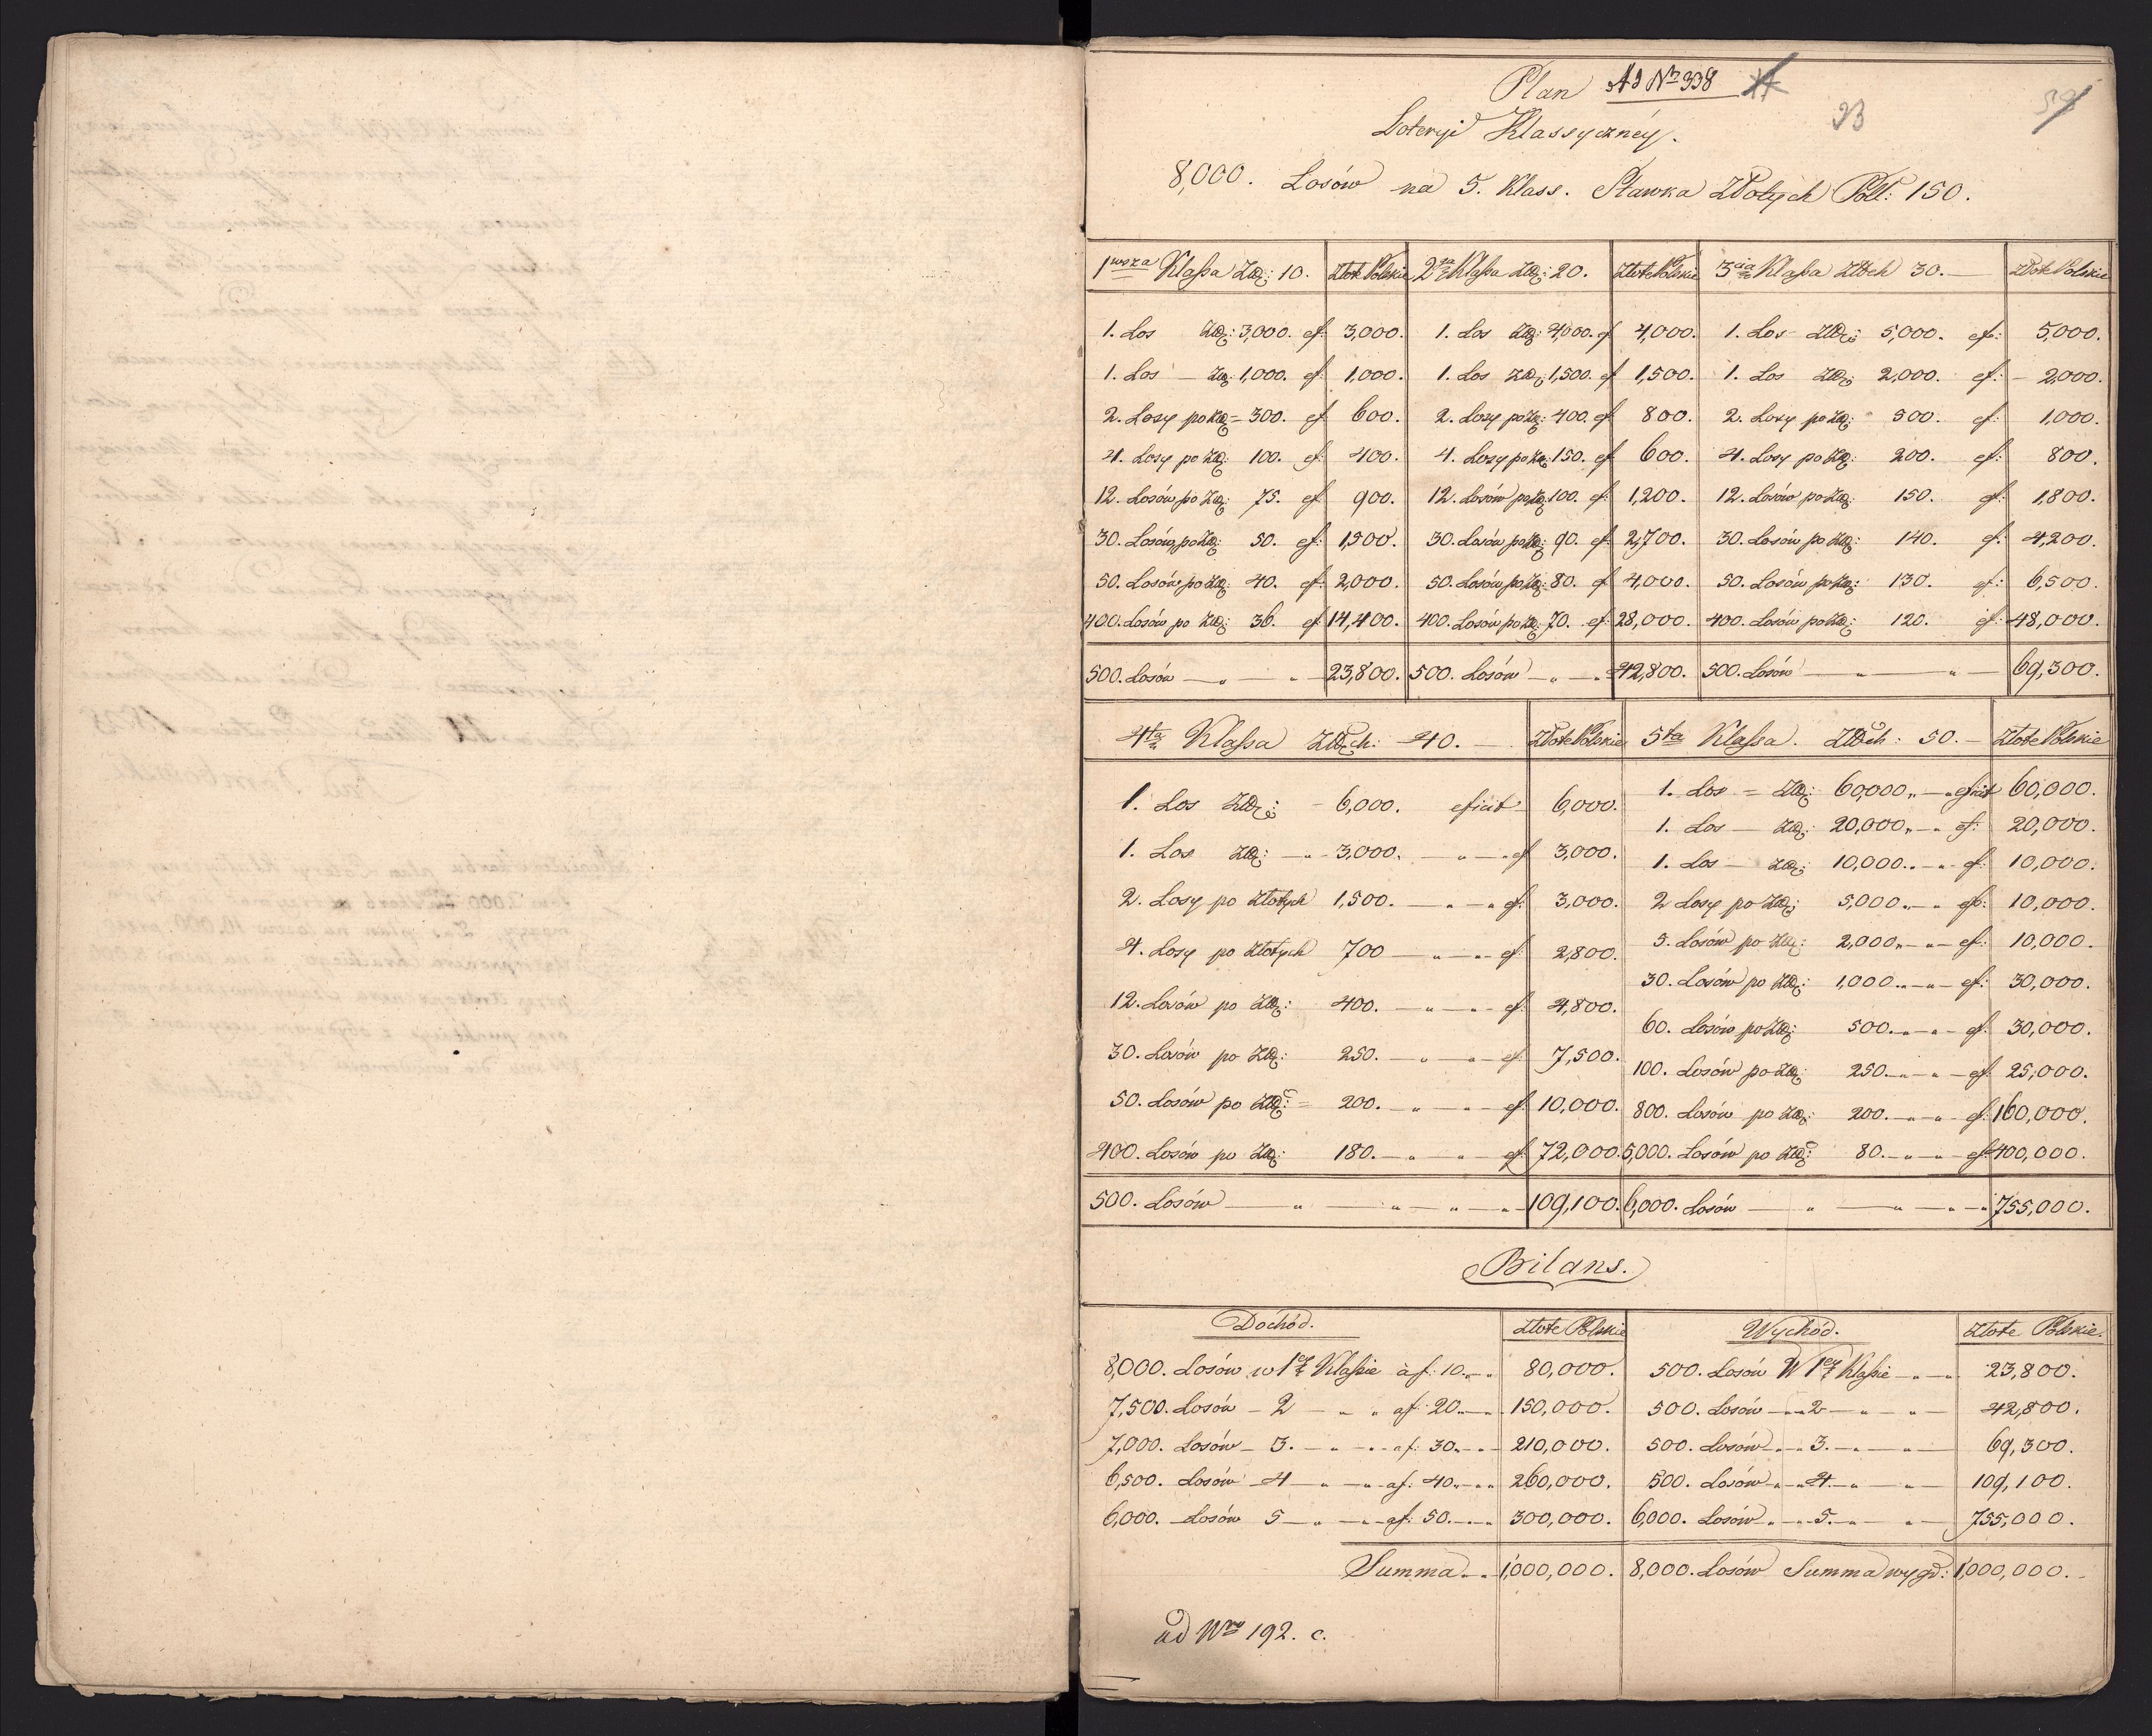 Plan Ad Nr 338
93
Loteryi Klassyczney.
8,000. Losów na 5. Klass. Stawka Złotych Pol: 150.
1wsza Klassa Złp: 10. Złote Polskie 2ga Klassa Złp: 20. Złote Polskie 3cia Klassa Złtch 30. — Złote Polskie
1. Los Złp: 3,000. ef: 3,000. 1. Los Złp: 4,000. ef 4,000. 1. Los Złp: 5,000. ef: 5,000.
1. Los — Złp: 1,000. ef: 1,000. 1. Los Złp: 1,500. ef 1,500. 1. Los Złp: 2,000. ef: 2,000.
2. Losy po Złp 300. ef 600. 2. Losy po Złp: 400. ef 800. 2. Losy po Złp: 500. ef: 1,000.
4. Losy po Złp: 100. ef: 400. 4. Losy po Złp: 150. ef 600. 4. Losy po Złp: 200. ef: 800.
12. Losów po Złp: 75. ef 900. 12. Losów po Złp: 100. ef: 1,200. 12. Losów po Złp: 150. ef: 1,800.
30. Losów po Złp: 50. ef: 1,500. 30. Losów po Złp: 90. ef: 2,700. 30. Losów po Złp: 140. ef: 4,200.
50. Losów po Złp: 40. ef: 2,000. 50. Losów po Złp: 80. ef 4,000. 50. Losów po Złp: 130. ef: 6,500.
400. Losów po Złp: 36. ef 14,400. 400. Losów po Złp: 70. ef: 28,000. 400. Losów po Złp: 120. ef: 48,000.
500. Losów — " — " — 23,800. 500. Losów — " — " 42,800. 500. Losów — " — " — 69,300.
4ta Klassa Złpch: 40. — Złote Polskie 5ta Klassa. Złtch: 50. — Złote Polskie
1. Los Złp: 6,000. eficit 6,000.
1. Los Złp: — " 3,000. — " — " ef 3,000.
2. Losy po Złotych 1,500. — " — " ef: 3,000.
4. Losy po Złotych 700 — " — " ef: 2,800.
12. Losów po Złp: 400. — " — " ef: 4,800.
30. Losów po Złp: 250. — " — " ef 7,500.
50. Losów po Złp: 200. — " — " ef 10,000.
400. Losów po Złp: 180. — " — " ef 72,000.
500. Losów — " — " — " — " — 109,100.
1. Los = Złp: 60,000 " — " eficit 60,000.
1. Los — Złp: 20,000 " — " ef: 20,000.
1. Los — Złp: 10,000. — " ef: 10,000.
2 Losy po Złp: 5,000. — " ef: 10,000.
5. Losów po Złp: 2,000 " — " — ef: 10,000.
30. Losów po Złp: 1,000. — " — ef: 30,000.
60. Losów po Złp: 500. — " — ef: 30,000.
100. Losów po Złp: 250. — " — ef: 25,000.
800. Losów po Złp: 200. — " — ef: 160,000.
5,000. Losów po Złp: 80. — " — ef: 400,000.
6,000. Losów — " — " — " — " 755,000.
Bilans.
Dochód. Złote Polskie Wychód. Złote Polskie.
8,000. Losów w 1ey Klassie à f: 10. — " 80,000. 500. Losów W 1ey Klassie — " — 23,800.
7,500. Losów — 2 — " " af: 20. — " 150,000. 500. Losów — " 2 — " — " — 42,800.
7,000. Losów — 3. — " — " af: 30. — " 210,000. 500. Losów — " 3. — " — " — 69,300.
6,500. Losów — 4 — " — " af: 40. — " 260,000. 500. Losów — " 4. — " — " — 109,100.
6,000. Losów 5 — " — " af: 50. — " 300,000. 6,000. Losów — " 5. — " — " — 755,000.
Summa. — " 1,000,000. 8,000. Losów Summa wygr: 1,000,000.
ad Nro 192. c.